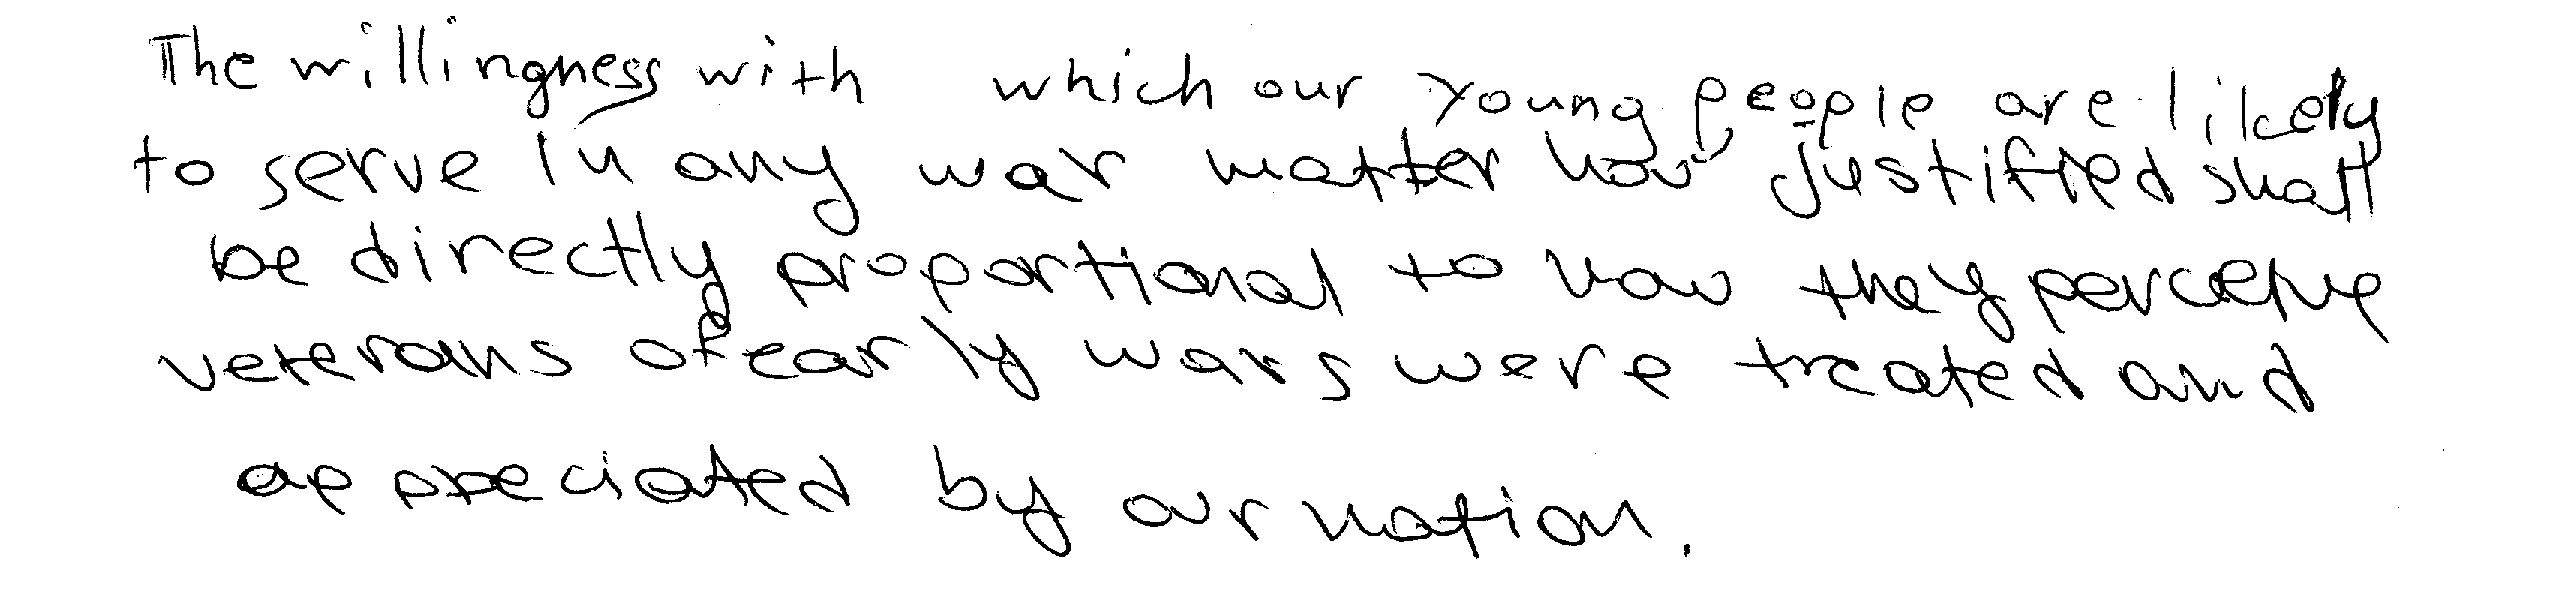 The willingness with which our young people are likely
to serve in any war matter how justified shall
be directly proportional to how they perceive
veterans of early wars were treated and
appreciated by our nation.